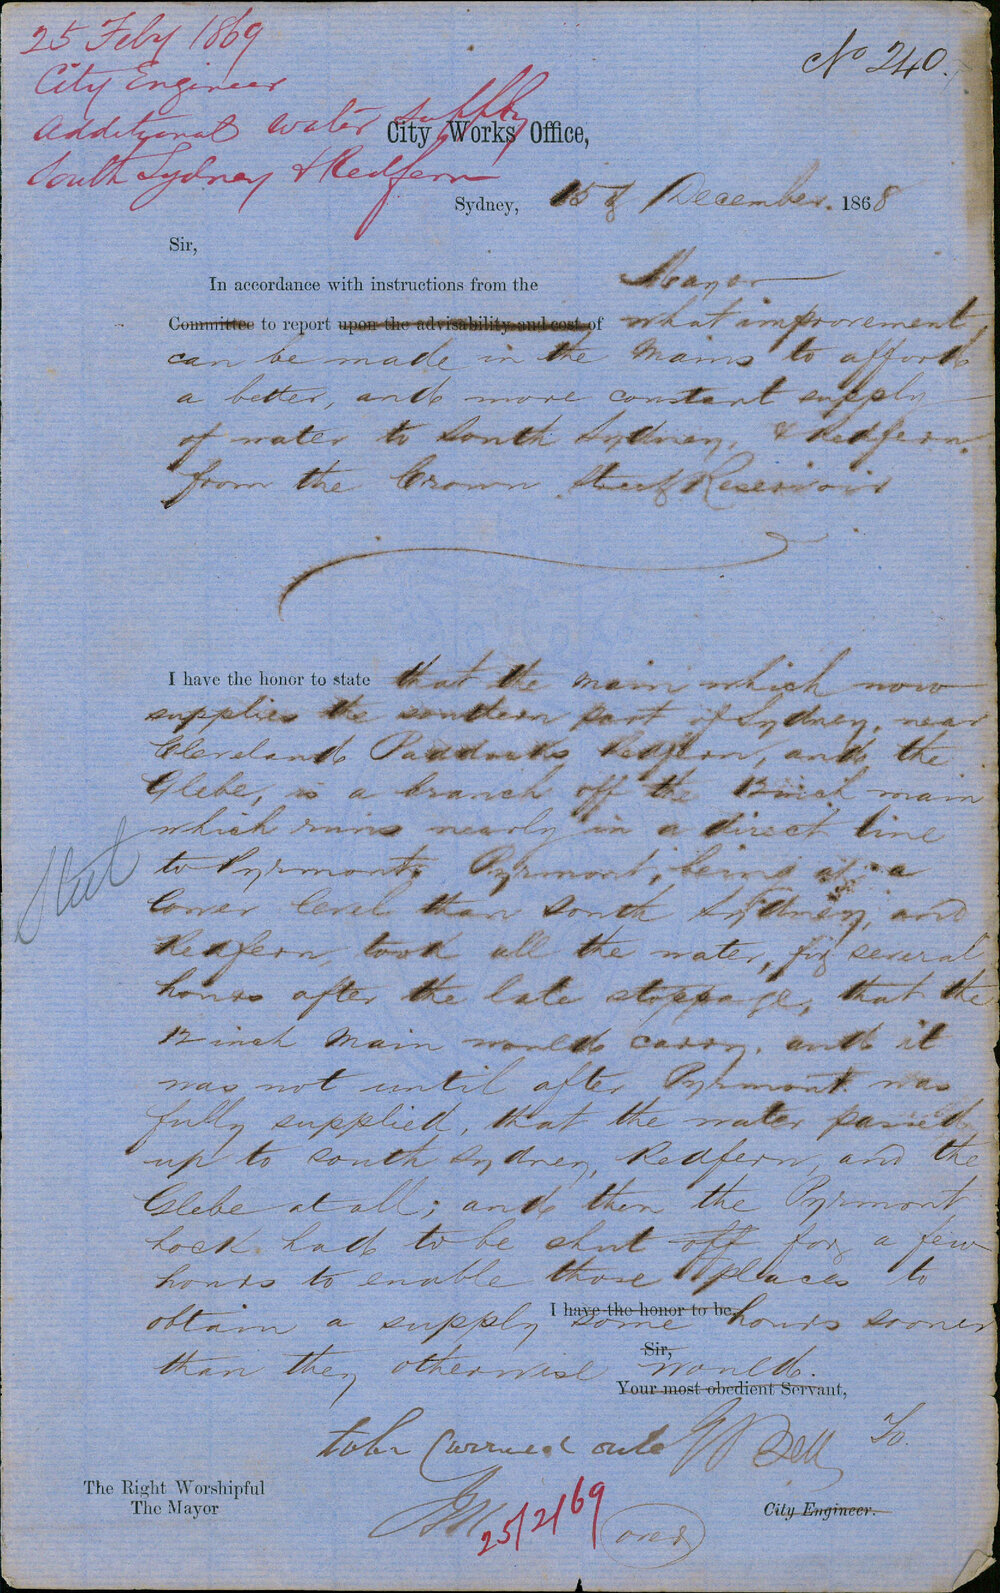 25 Feby 1869
City Engineer
Additional water supply
South Sydney & Redfern
No 240.
City Works Office,
Sydney, 15th December 1868
Sir,
In accordance with instructions from the Mayor
Committee to report upon the advisability and cost of what improvement
can be made in the mains to afford
a better, and more constant supply
of water to South Sydney, & Redfern
from the Crown Street Reservoir
I have the honor to state that the main which now
supplies the southern part of Sydney, near
Cleveland Paddocks Redfern, and the
Glebe, is a branch off the 12 inch main
which runs nearly in a direct line
to Pyrmont. Pyrmont, being at a
lower level than South Sydney, and
Redfern, took all the water, for several
hours after the late stoppage, that the
12 inch main would carry. and it
was not until after Pyrmont was
fully supplied, that the water passed
up to South Sydney, Redfern, and the
Glebe at all; and then the Pyrmont
lock had to be shut off for a few
hours to enable those places to
I have the honor to be,
obtain a supply some hours sooner
Sir,
than they otherwise would.
Your most obedient Servant,
to be carried out
The Right Worshipful
The Mayor
25/2/69
over
City Engineer.